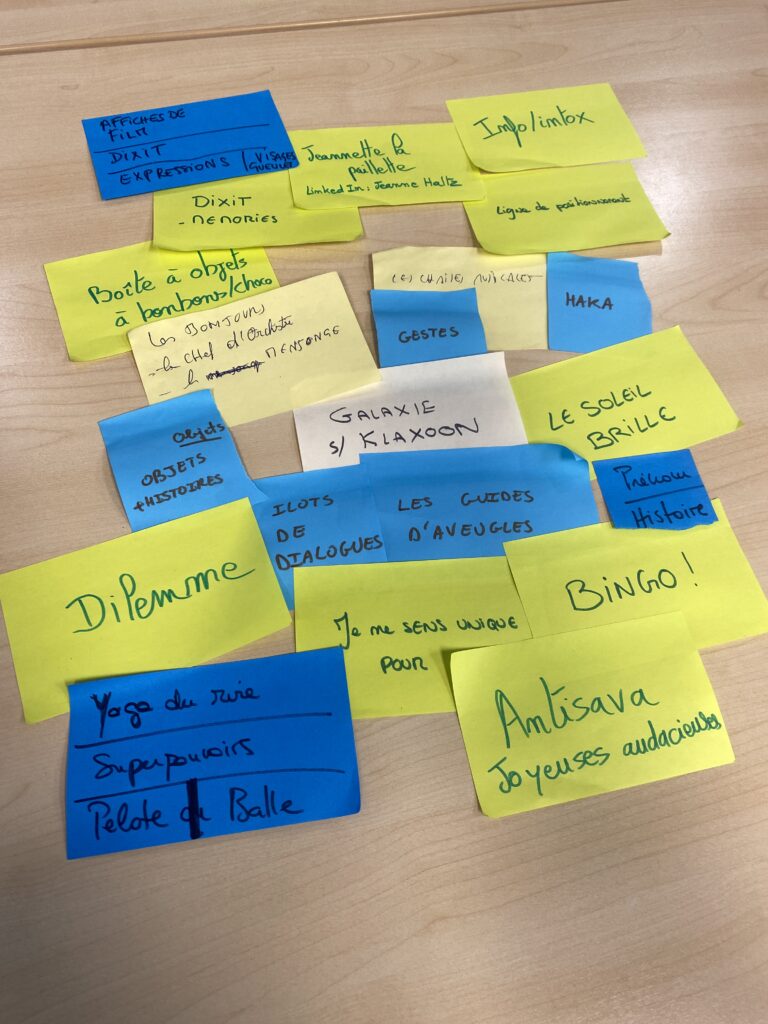 AFFICHES DE
FILM
DIXIT
EXPRESSIONS / VISAGES
GUEULES
Jeannette la
paillette
LinkedIn : Jeanne Haltz
Info/intox
DIXIT
- MEMORIES
Ligne de positionnement
Boîte à objets
à bonbons/choco
LES CHAISES MUSICALES
GESTES
HAKA
Les BONJOURS
- le CHef d'Orchestre
- le MENSONGE
GALAXIE
s/ KLAXOON
LE SOLEIL
BRILLE
Objets
OBJETS
+HISTOIRES
ILOTS
DE
DIALOGUES
LES GUIDES
D'AVEUGLES
Prénom
Histoire
Dilemme
Je me SENS UNIQUE
POUR
BINGO !
Yoga du rire
Superpouvoirs
Pelote Balle
Antisava
Joyeuses audacieuses